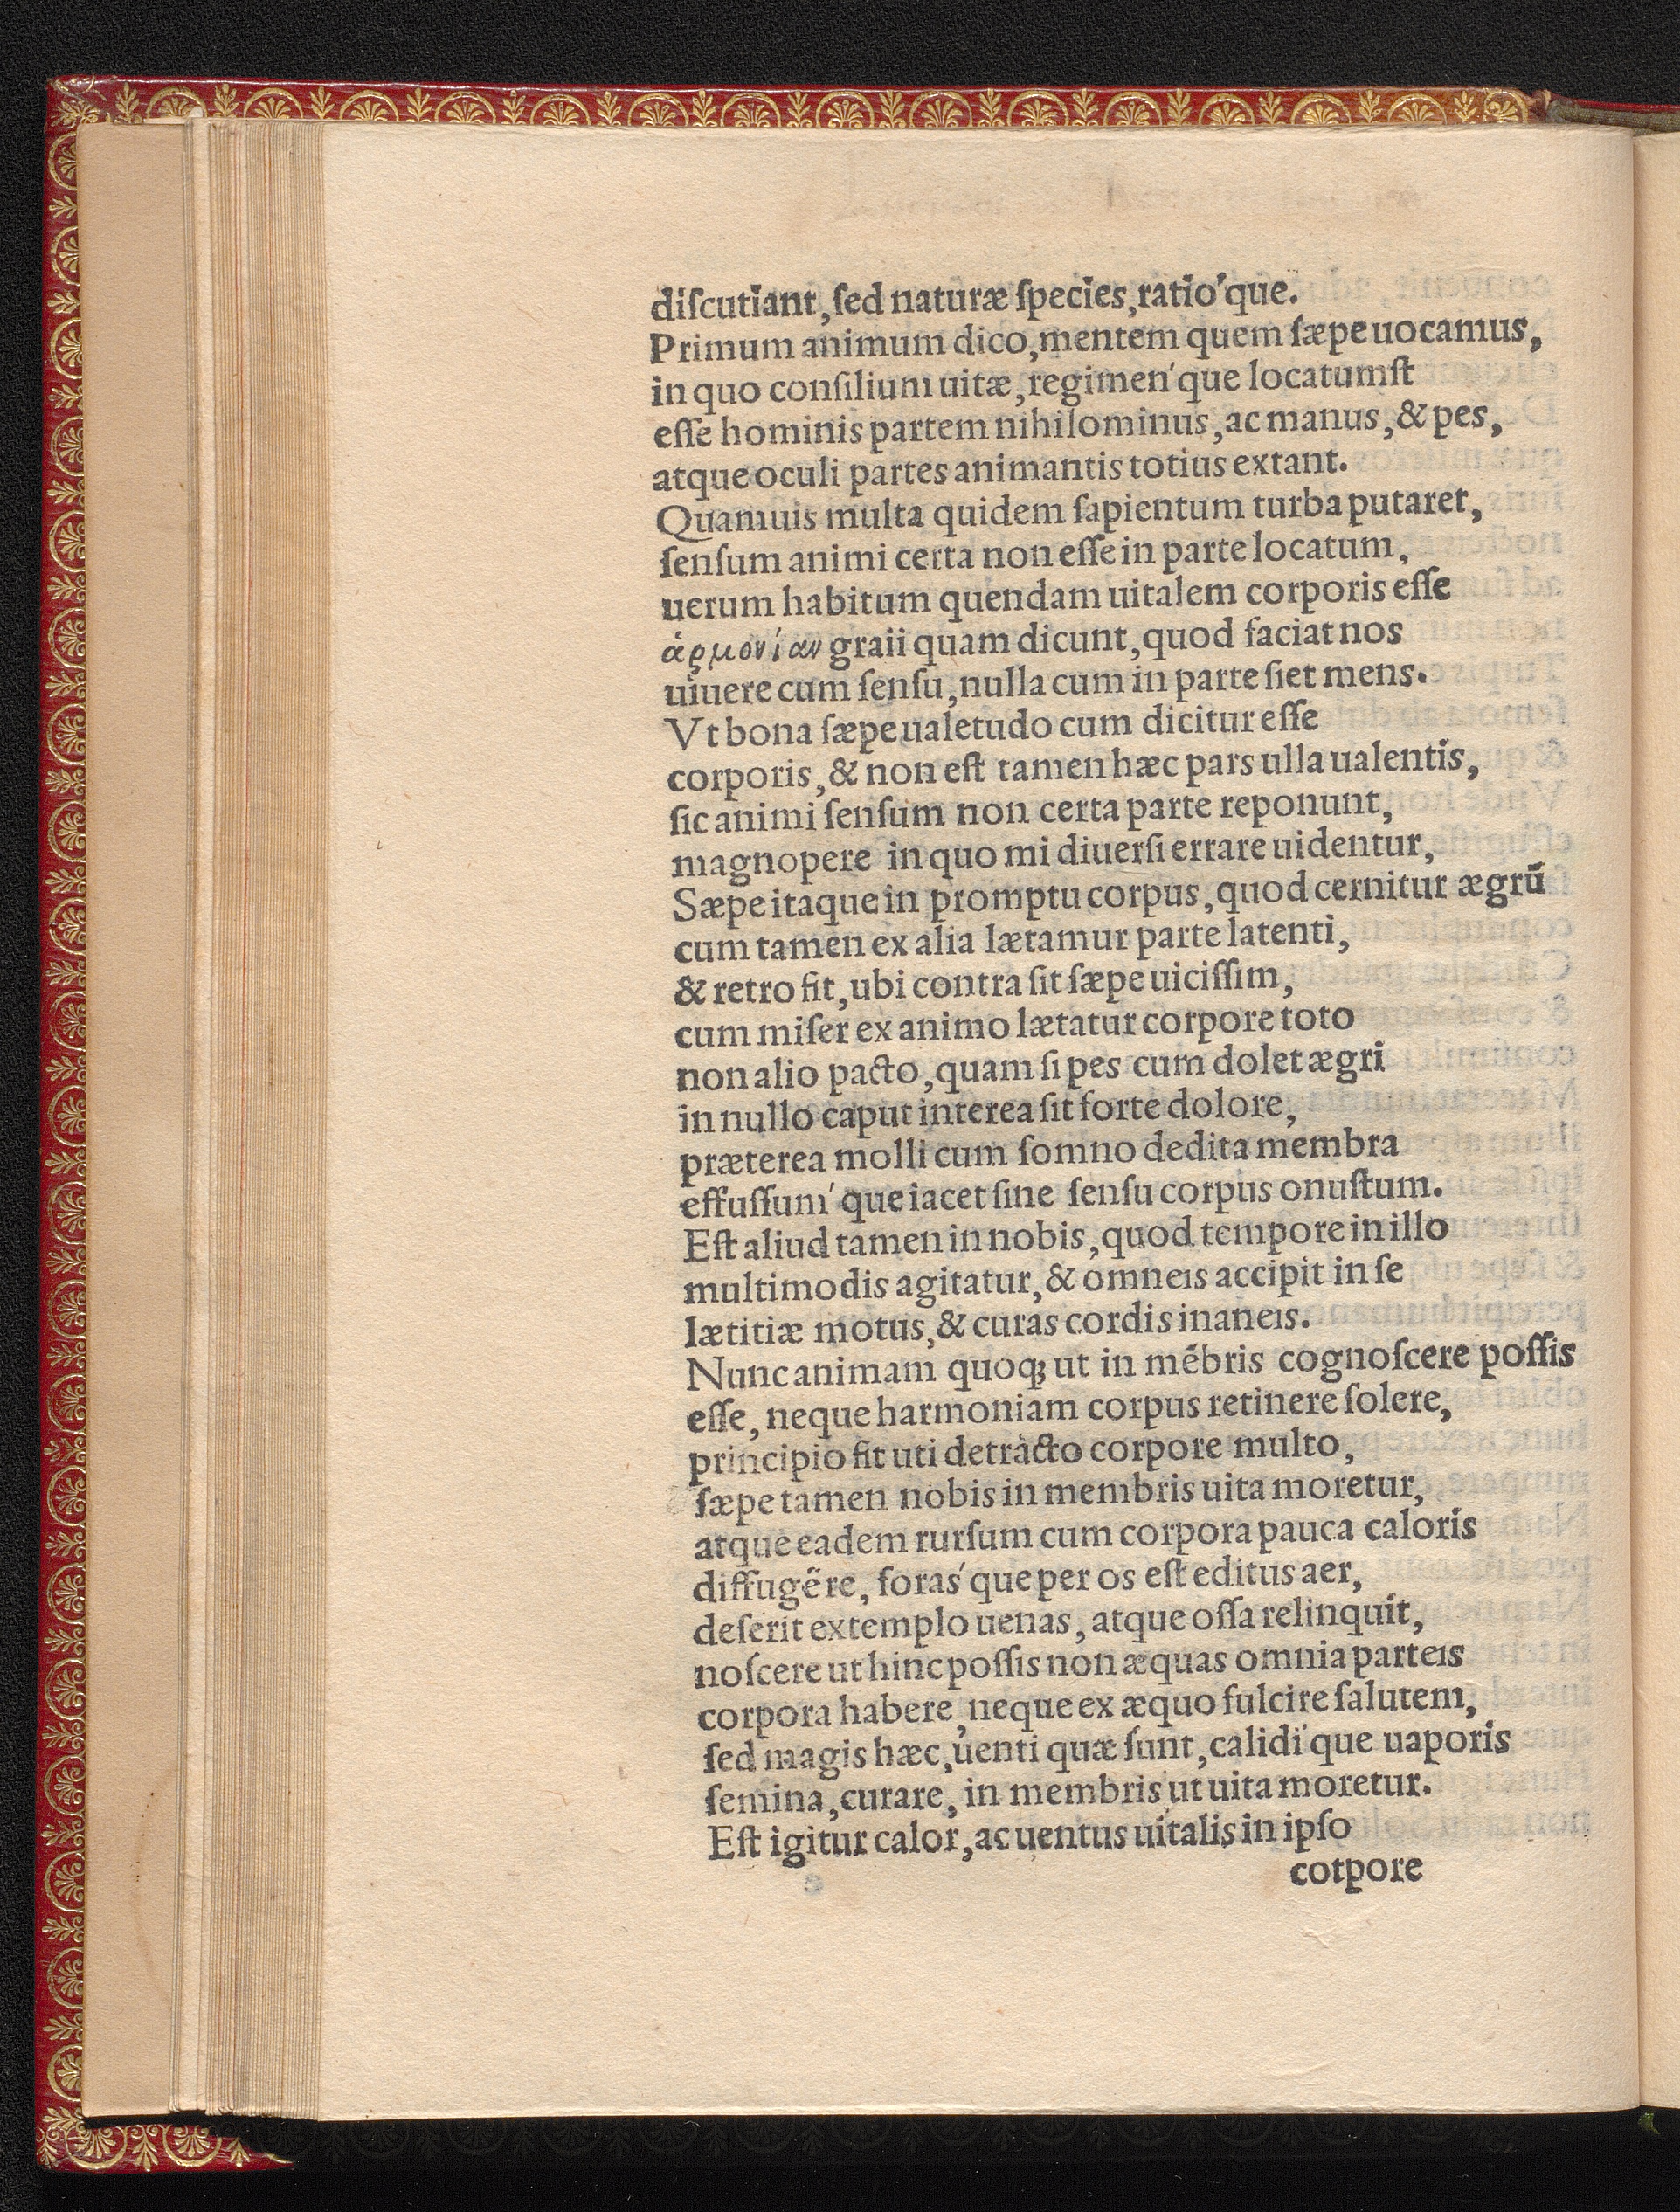 diſcutiant, ſed naturæ ſpecies, ratio'que.
Primum animum dico, mentem quem ſæpe uocamus,
in quo conſilium uitæ, regimen'que locatumſt
eſſe hominis partem nihilominus, ac manus, & pes,
atque oculi partes animantis totius extant.
Quamuis multa quidem ſapientum turba putaret,
ſenſum animi certa non eſſe in parte locatum,
uerum habitum quendam uitalem corporis eſſe
ἁρμονίαν graii quam dicunt, quod faciat nos
uiuere cum ſenſu, nulla cum in parte ſiet mens.
Vt bona ſæpe ualetudo cum dicitur eſſe
corporis, & non eſt tamen hæc pars ulla ualentis,
ſic animi ſenſum non certa parte reponunt,
magnopere in quo mi diuerſi errare uidentur,
Sæpe itaque in promptu corpus, quod cernitur ægrū
cum tamen ex alia lætamur parte latenti,
& retro fit, ubi contra ſit ſæpe uiciſſim,
cum miſer ex animo lætatur corpore toto
non alio pacto, quam ſi pes cum dolet ægri
in nullo caput interea ſit forte dolore,
præterea molli cum ſomno dedita membra
effuſſum'que iacet ſine ſenſu corpus onuſtum.
Eſt aliud tamen in nobis, quod tempore in illo
multimodis agitatur, & omneis accipit in ſe
lætitiæ motus, & curas cordis inaneis.
Nunc animam quoqꝫ ut in mēbris cognoſcere poſſis
eſſe, neque harmoniam corpus retinere ſolere,
principio fit uti detracto corpore multo,
ſæpe tamen nobis in membris uita moretur,
atque eadem rurſum cum corpora pauca caloris
diffugēre, foras'que per os eſt editus aer,
deſerit extemplo uenas, atque oſſa relinquit,
noſcere ut hinc poſſis non æquas omnia parteis
corpora habere, neque ex æquo fulcire ſalutem,
ſed magis hæc, uenti quæ ſunt, calidi'que uaporis
ſemina, curare, in membris ut uita moretur.
Eſt igitur calor, ac uentus uitalis in ipſo
cotpore